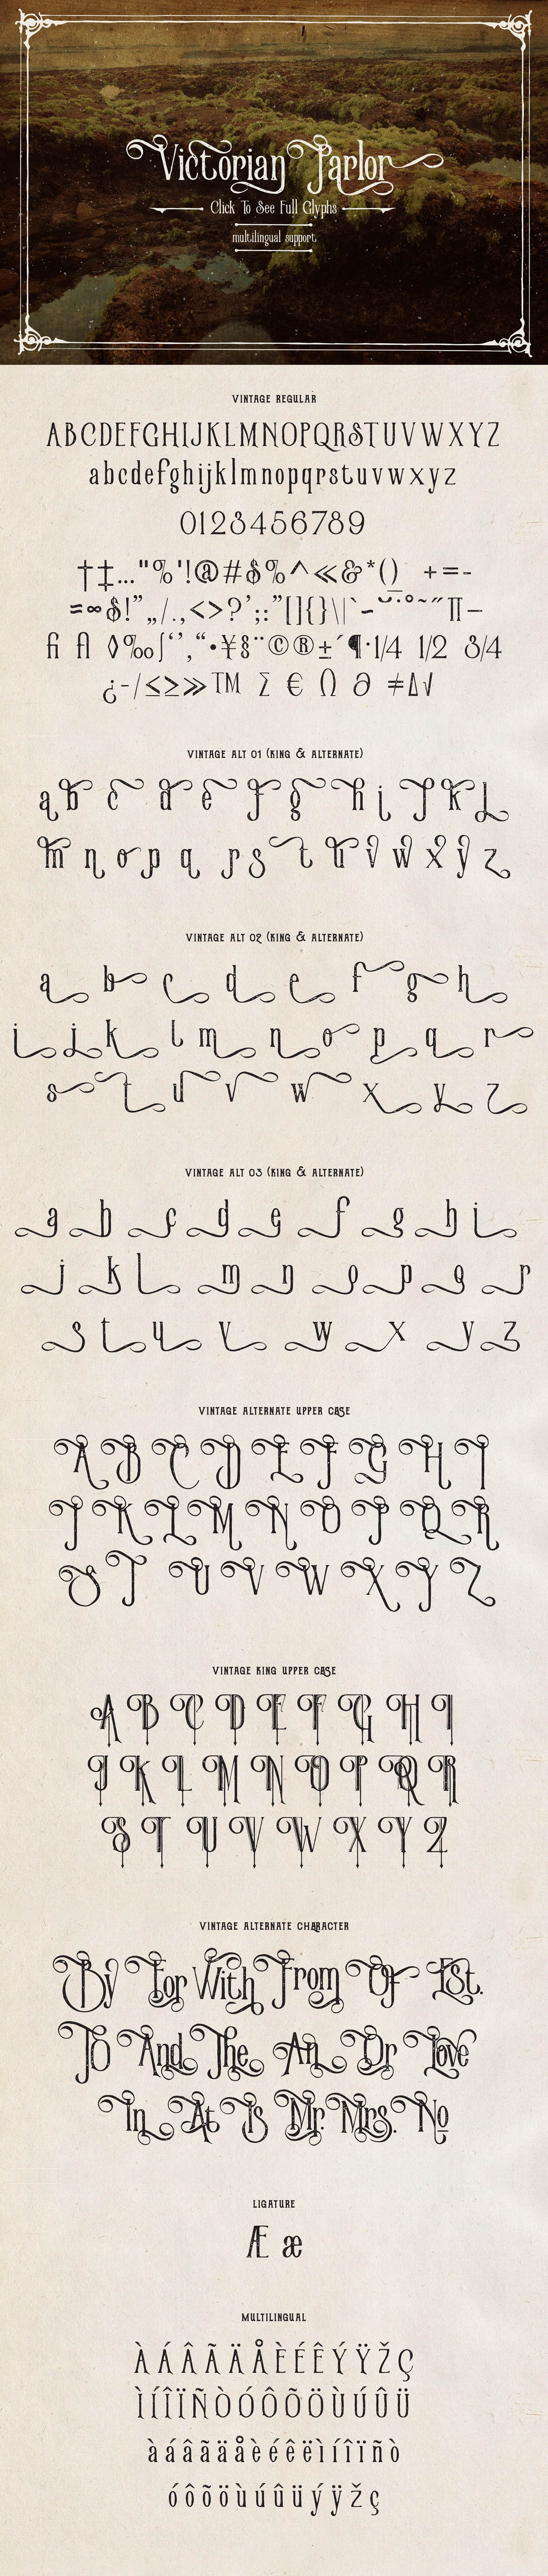 Victorian Parlor
Click To See Full Glyphs
multilingual support
VINTAGE REGULAR
ABCDEFGHIJKLMNOPQRSTUVWXYZ
abcdefghijklmnopqrstuvwxyz
0123456789
†‡…"%'!@#$%^≪&*() +=-
≈∞$!”„/.,<>?’;:”[]{}\|`~˘¯˙°˜˝∏–
fi fl ◊‰∫‘’,“•¥§¨©®±´¶·1/4 1/2 3/4
¿-/≤≥≫TM Σ € Ω ∂ ≠∆√
VINTAGE ALT 01 (KING & ALTERNATE)
a b c d e f g h i j k l
m n o p q r s t u v w x y z
VINTAGE ALT 02 (KING & ALTERNATE)
a b c d e f g h
i j k l m n o p q r
s t u v w x y z
VINTAGE ALT 03 (KING & ALTERNATE)
a b c d e f g h i
j k l m n o p q r
s t u v w x y z
VINTAGE ALTERNATE UPPER CASE
A B C D E F G H I
J K L M N O P Q R
S T U V W X Y Z
VINTAGE KING UPPER CASE
A B C D E F G H I
J K L M N O P Q R
S T U V W X Y Z
VINTAGE ALTERNATE CHARACTER
By For With From Of Est.
TO And The An Or Love
In At Is Mr. Mrs. No
LIGATURE
Æ æ
MULTILINGUAL
À Á Â Ã Ä Å È É Ê Ý Ÿ Ž Ç
Ì Í Î Ï Ñ Ò Ó Ô Õ Ö Ù Ú Û Ü
à á â ã ä å è é ê ë ì í î ï ñ ò
ó ô õ ö ù ú û ü ý ÿ ž ç